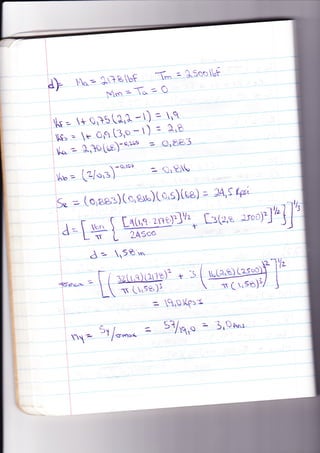 d) Ma = 2178 lbf Tm = 2500 lbf
Mm = Ta = 0
Kf = 1+ 0,75(2,2 - 1) = 1,9
Kfs = 1+ 0,9(3,0 - 1) = 2,8
Ka = 2,70(68)^-0,265 = 0,883
Kb = (2/0,3)^-0,107 = 0,816
Se = (0,883)(0,816)(0,5)(68) = 24,5 Kpsi
d = [ 16n/π { [4(1,9 · 2178)²]^1/2 / 24500 + [3(2,8 · 2500)²]^1/2 } ]^1/3
d = 1,58 in
σmax = [ ( 32(1,9)(2178) / π (1,58)³ )² + 3 ( 16(2,8)(2500) / π (1,58)³ )² ]^1/2
= 19,0 Kpsi
ny = Sy/σmax = 57/19,0 = 3,0